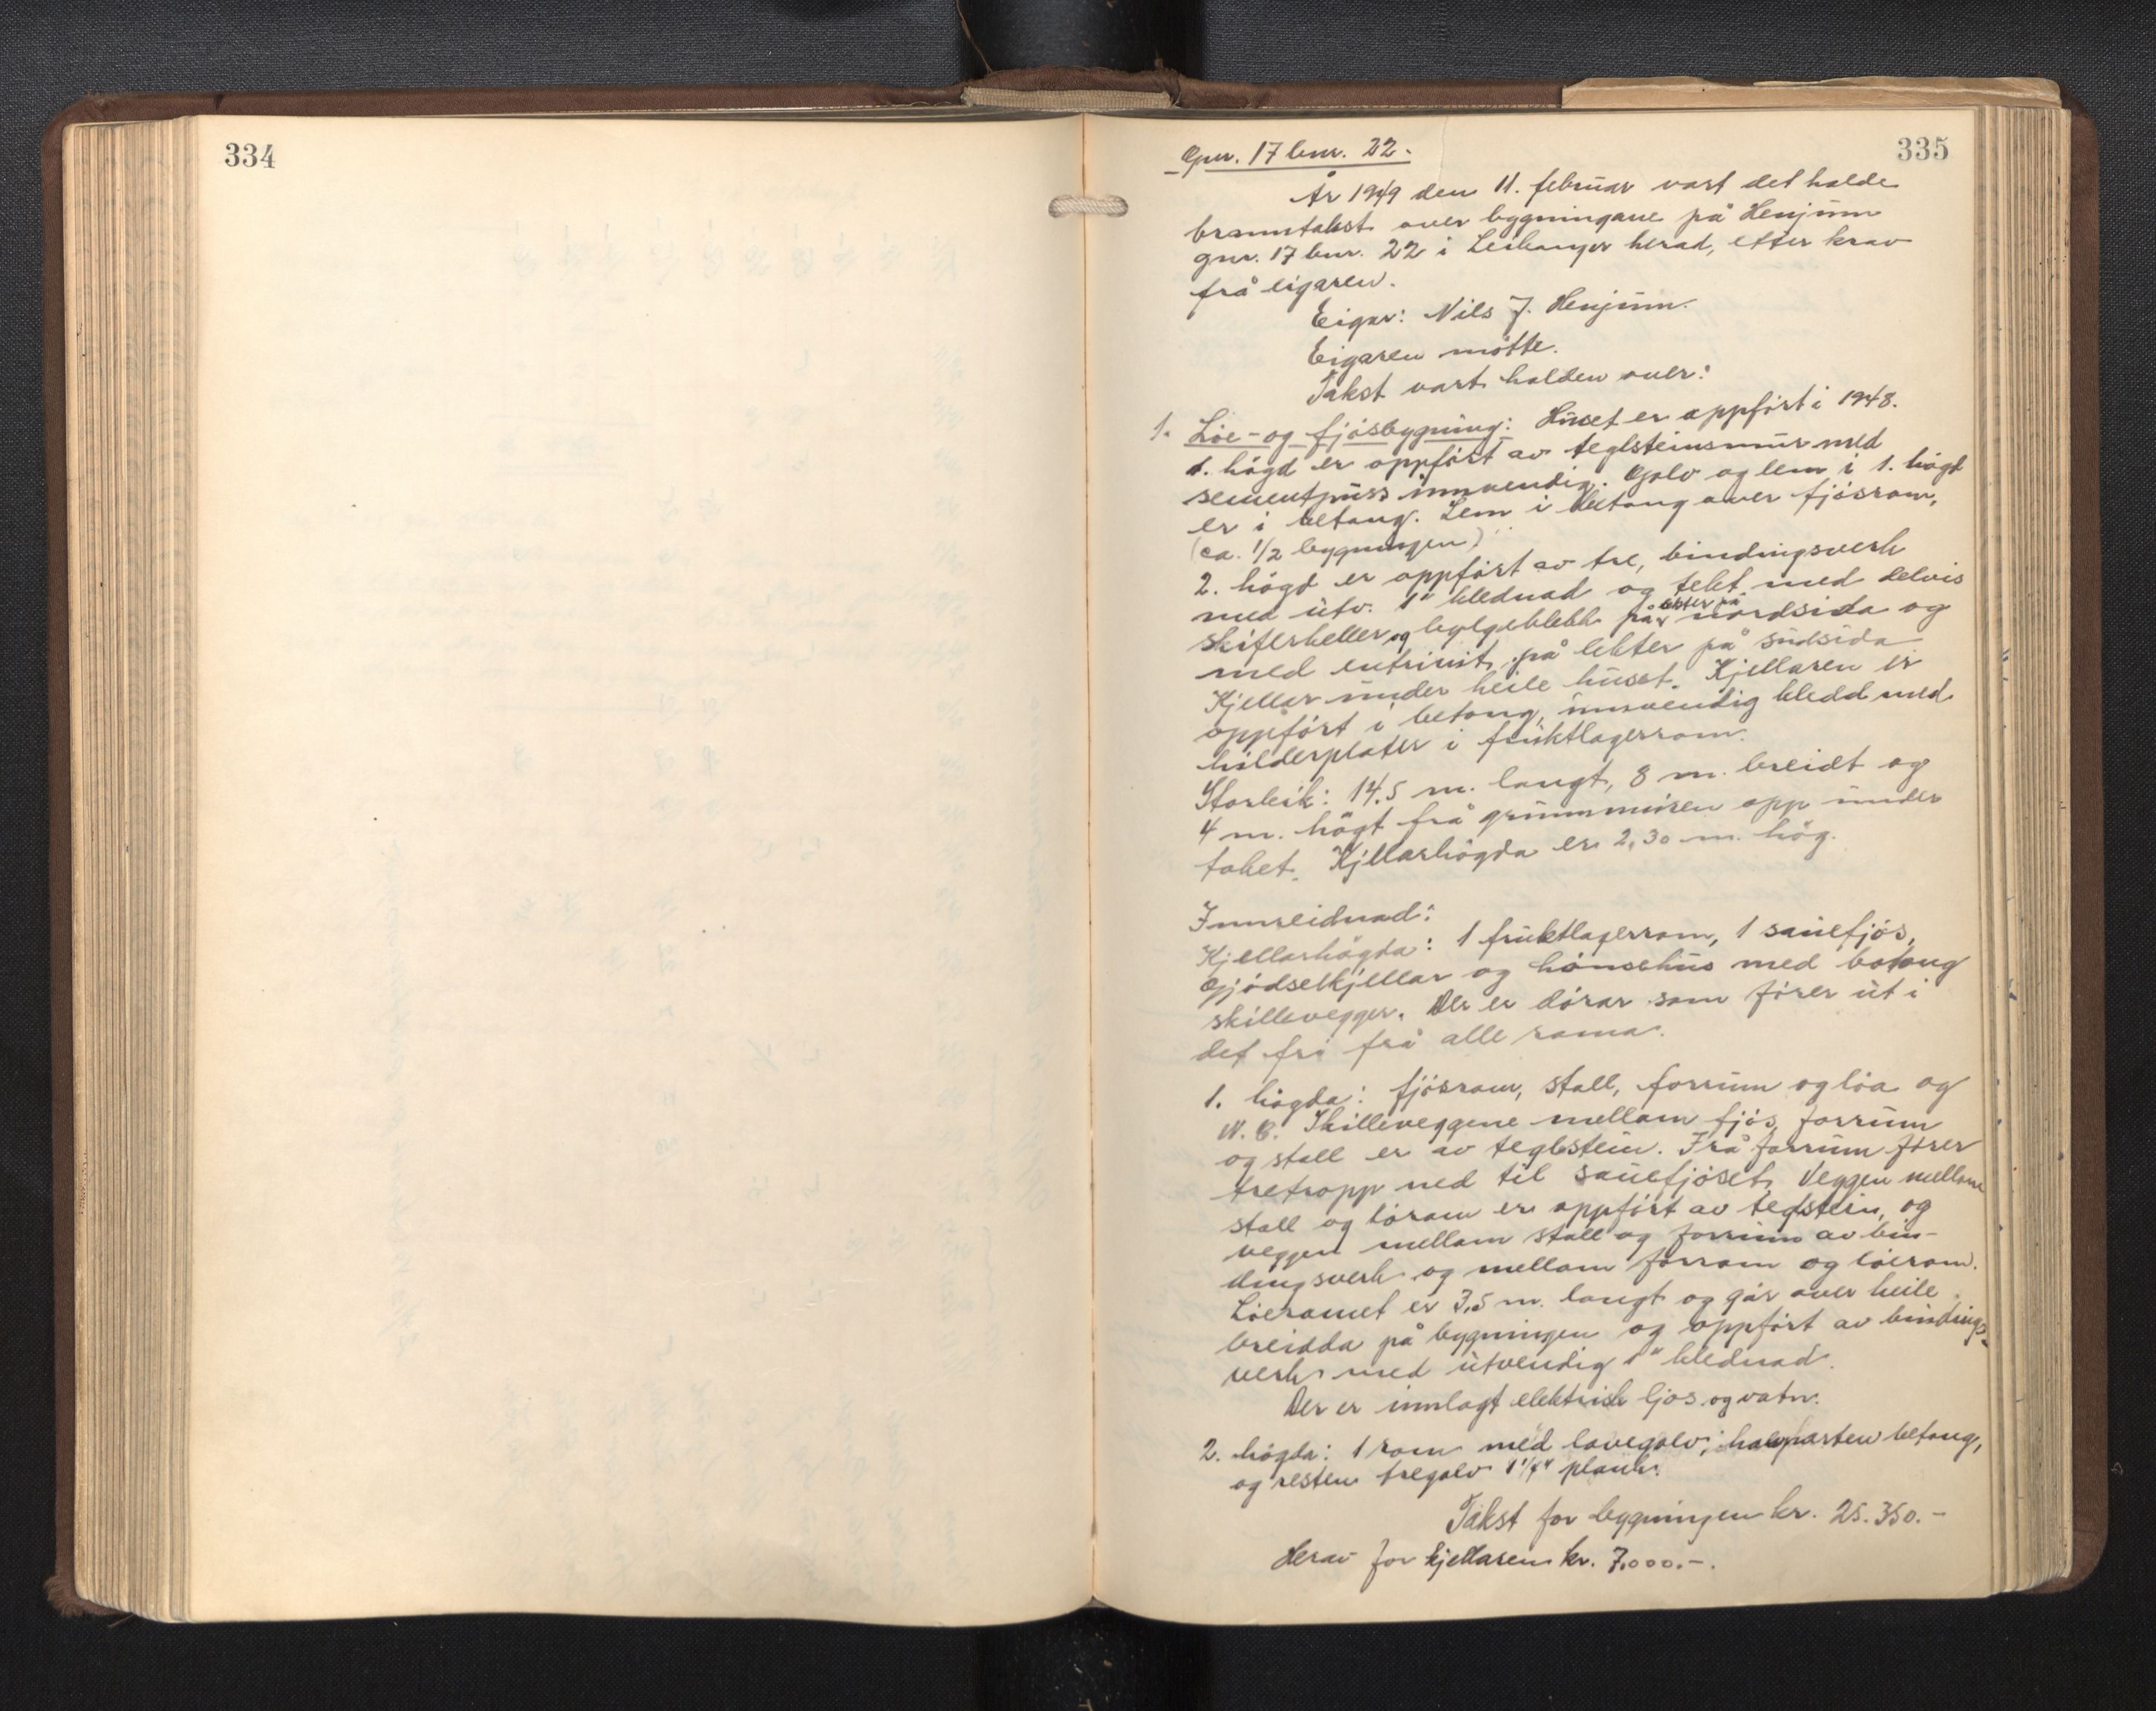 334
335
Gnr. 17 bnr. 22.
År 1949 den 11. februar vart det halde
branntakst over bygningane på Henjum
gnr. 17 bnr. 22 i Leikanger herad, etter krav
frå eigaren.
Eigar: Nils J. Henjum.
Eigaren møtte.
Takst vart halden over:
1. Löe- og fjösbygning: Huset er oppført i 1948.
1. högd er oppført av teglsteinsmur med
sementpuss innvendig. Golv og lem i 1. högd
er i betong. Lem i betong over fjösrom,
(ca. 1/2 bygningen)
2. högd er oppført av tre, bindingsverk
med utv. 1" klednad og tekt med delvis
skiferheller og bylgeblekk på lekter på nordsida og
med eutrinit på lekter på sudsida
Kjellar under heile huset. Kjellaren er
oppført i betong, innvendig kledd med
hulderplater i fruktlagerrom.
Storleik: 14,5 m. langt, 8 m. breidt og
4 m. högt frå grunnmuren opp under
taket. Kjellarhögda er 2,30 m. hög.
Innreidnad:
Kjellarhögda: 1 fruktlagerrom, 1 sauefjös,
gjødselkjellar og hönsehus med betong
skillevegger. Der er dörar som förer ut i
det fri frå alle roma.
1. högda: fjösrom, stall, forrum og löa og
W.C. Skilleveggene mellom fjös, forrum
og stall er av teglstein. Frå forrum förer
tretropp ned til sauefjöset. Veggen mellom
stall og lörom er oppført av teglstein, og
veggen mellom stall og forrum av bin-
dingsverk og mellom forrom og löerom.
Löeromet er 3,5 m. langt og går over heile
breidda på bygningen og oppført av bindings-
verk med utvendig 1" klednad.
Der er innlagt elektrisk ljos og vatn.
2. högda: 1 rom med lovegolv; halvparten betong,
og resten tregolv 1 1/4" plank.
Takst for bygningen kr. 25.350.-
Herav for kjellaren kr. 7.000.-.